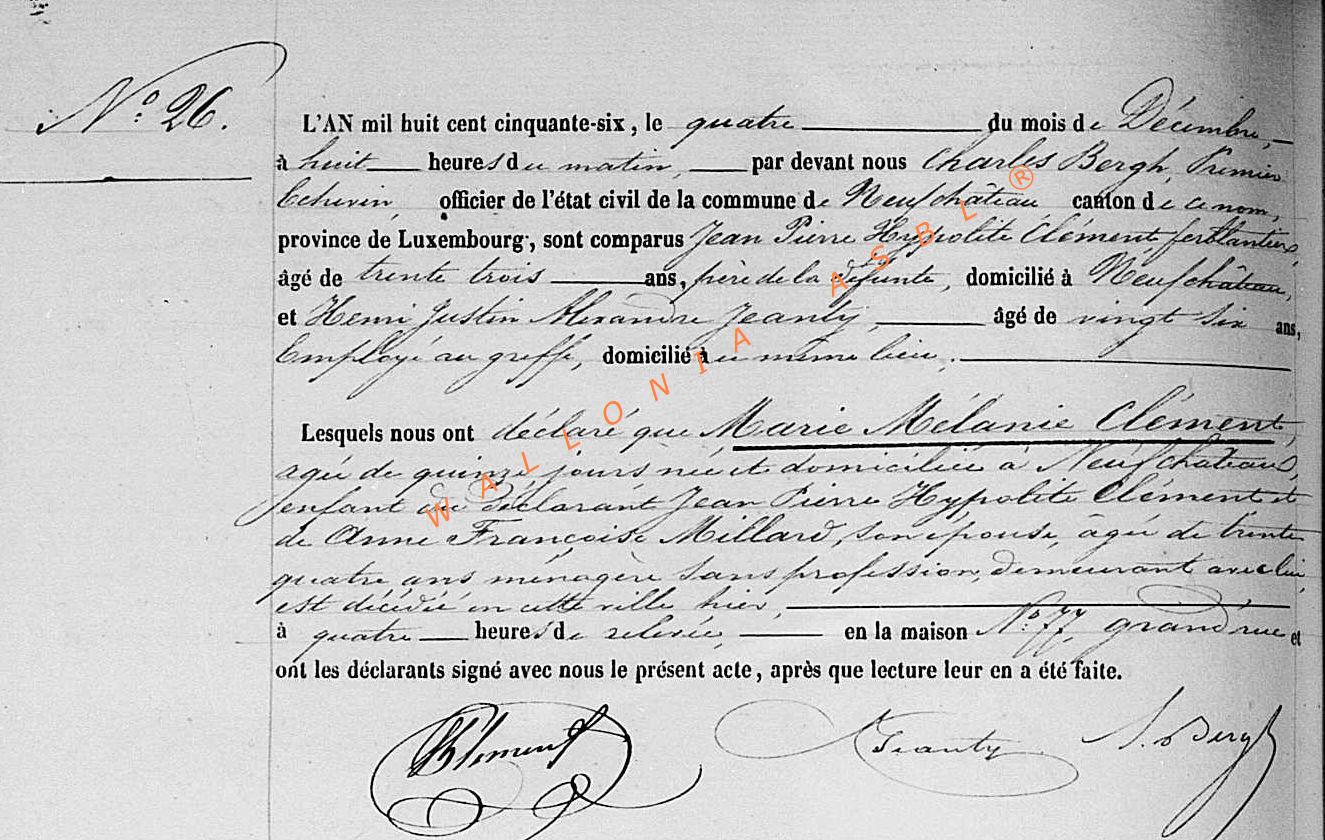 N.° 26.
L'AN mil huit cent cinquante-six, le quatre du mois de Décembre,
à huit heures du matin, par devant nous Charles Bergh, Premier
Echevin, officier de l'état civil de la commune de Neufchâteau canton de ce nom,
province de Luxembourg, sont comparus Jean Pierre Hypolite Clément ferblantier,
âgé de trente trois ans, père de la défunte, domicilié à Neufchâteau,
et Henri Justin Alexandre Jeanty, âgé de vingt six ans,
Employé au greffe, domicilié au même lieu.
Lesquels nous ont déclaré que Marie Mélanie Clément,
agée de quinze jours née et domiciliée à Neufchateau,
enfant du déclarant Jean Pierre Hypolite Clément et
de Anne Françoise Millard, son épouse, âgée de trente
quatre ans ménagère sans profession, demeurant avec lui,
est décédée en cette ville hier,
à quatre heures de relevée, en la maison N.° 77, grand rue et
ont les déclarants signé avec nous le présent acte, après que lecture leur en a été faite.
Clément Jeanty Bergh
WALLONIA ASBL ®